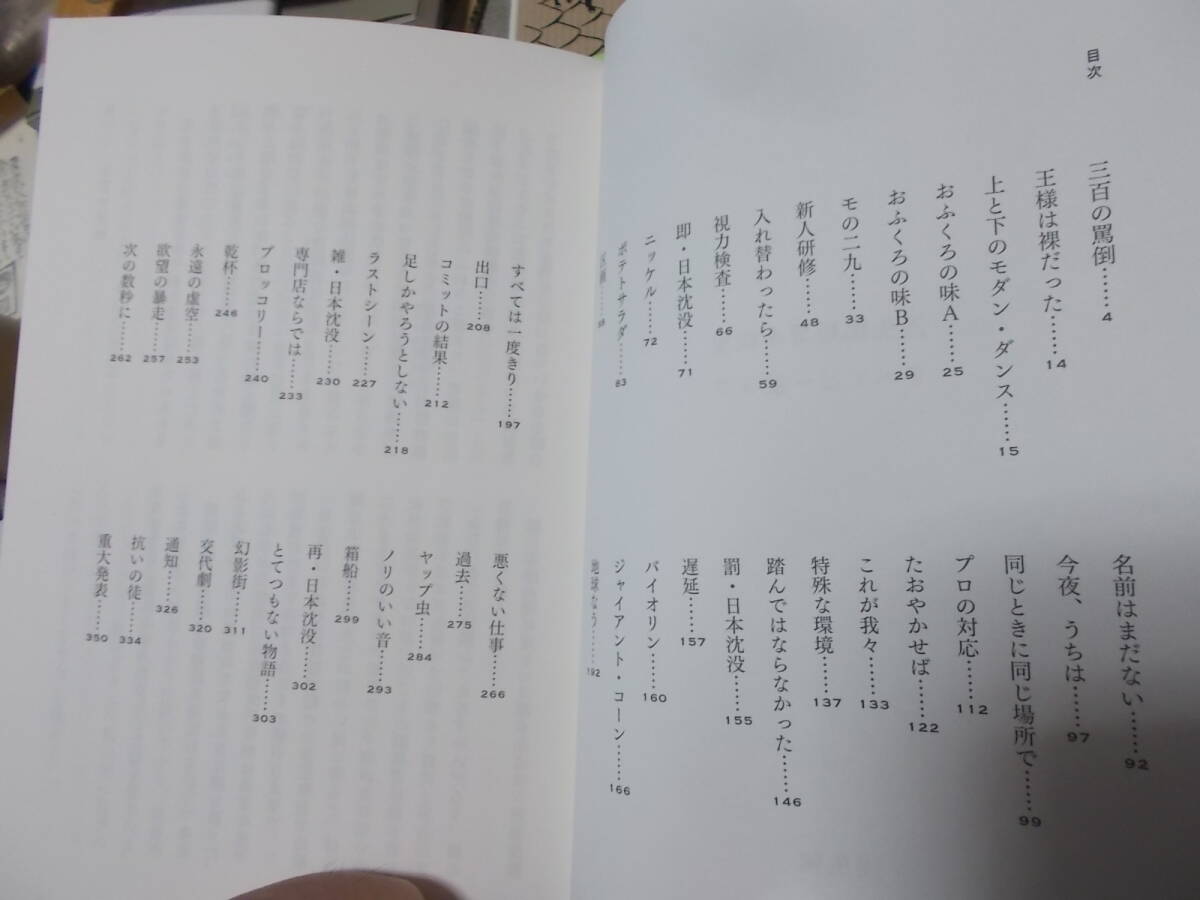 目次
三百の罵倒……4
王様は裸だった……14
上と下のモダン・ダンス……15
おふくろの味A……25
おふくろの味B……29
モの二九……33
新人研修……48
入れ替わったら……59
視力検査……66
即・日本沈没……71
ニッケル……72
ポテトサラダ……83
名前はまだない……92
今夜、うちは……97
同じときに同じ場所で……99
プロの対応……112
たおやかせば……122
これが我々……133
特殊な環境……137
踏んではならなかった……146
罰・日本沈没……155
遅延……157
バイオリン……160
ジャイアント・コーン……166
地球なう……192
すべては一度きり……197
出口……208
コミットの結果……212
足しかやろうとしない……218
ラストシーン……227
雑・日本沈没……230
専門店ならでは……233
ブロッコリー……240
乾杯……246
永遠の虚空……253
欲望の暴走……257
次の数秒に……262
悪くない仕事……266
過去……275
ヤップ虫……284
ノリのいい音……293
箱船……299
再・日本沈没……302
とてつもない物語……303
幻影街……311
交代劇……320
通知……326
抗いの徒……334
重大発表……350